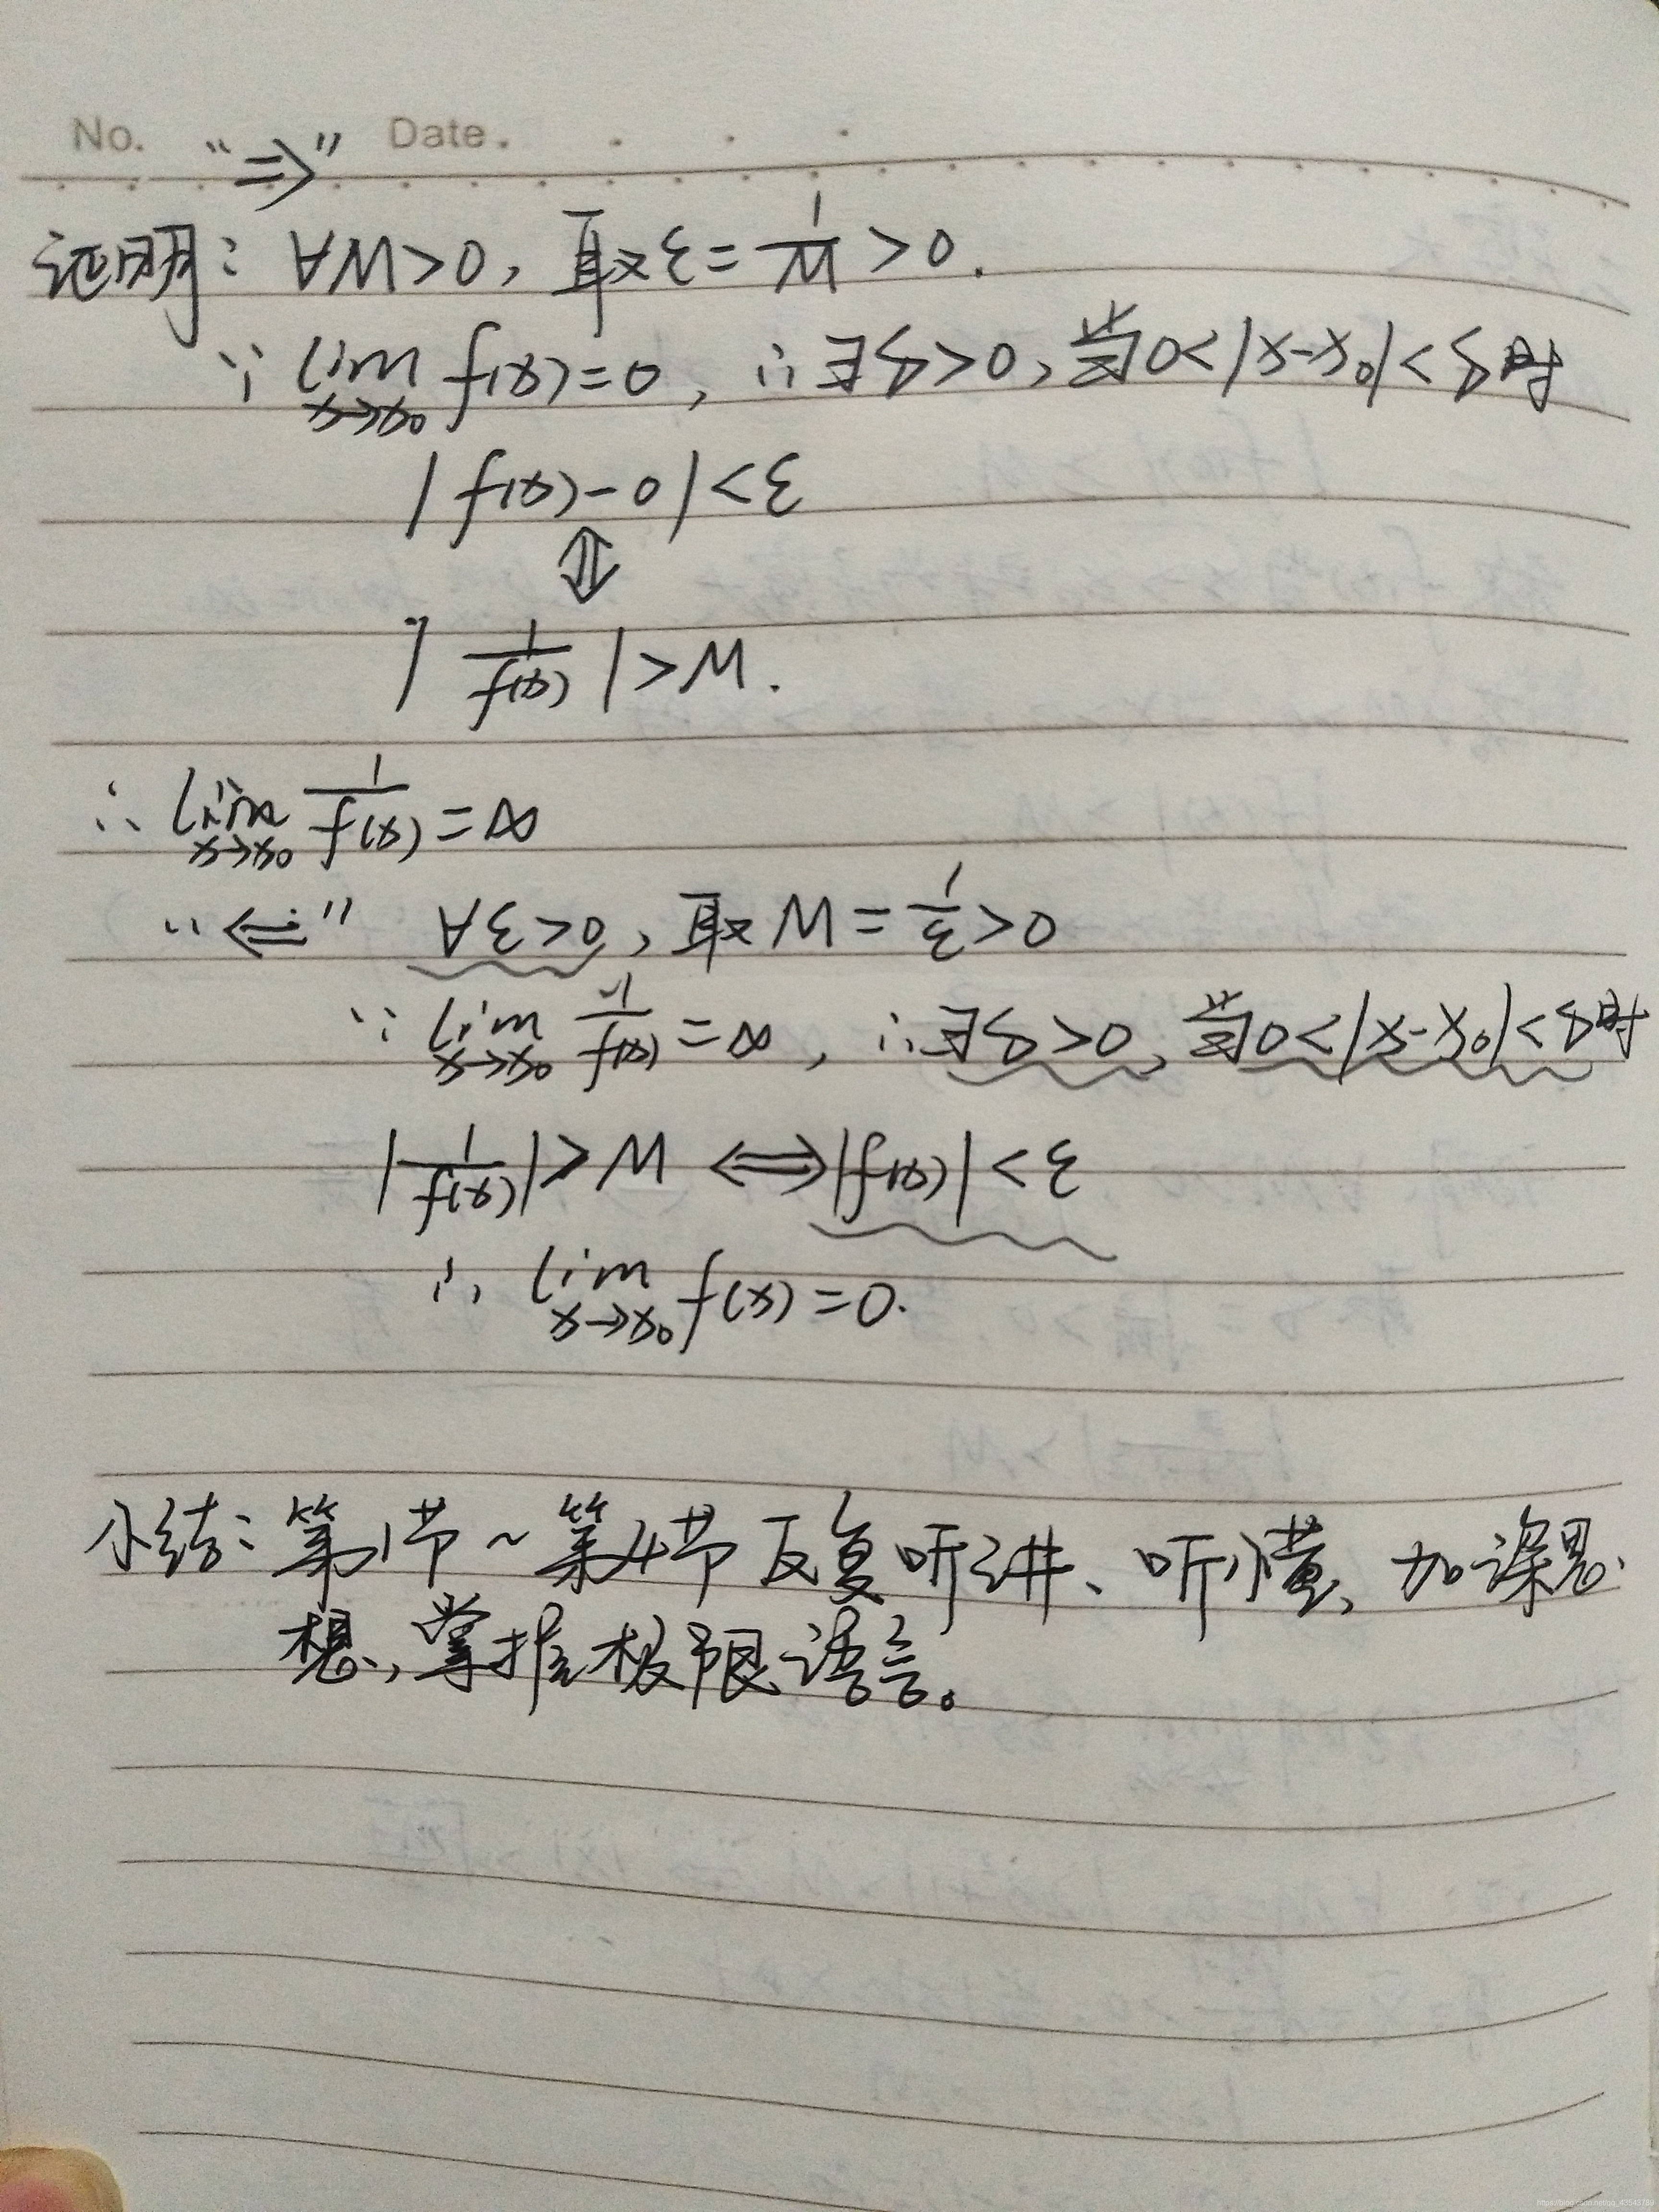 No. Date.
“⇒”
证明：∀M>0，取ε=1/M>0.
∵ lim_{x→x₀} f(x)=0，∴∃δ>0，当0<|x-x₀|<δ时
|f(x)-0|<ε
⇕
|1/f(x)|>M.
∴ lim_{x→x₀} 1/f(x)=∞
“⇐” ∀ε>0，取M=1/ε>0
∵ lim_{x→x₀} 1/f(x)=∞，∴∃δ>0，当0<|x-x₀|<δ时
|1/f(x)|>M ⇔ |f(x)|<ε
∴ lim_{x→x₀} f(x)=0.
小结：第1节~第4节反复听讲、听懂，加深思
想，掌握极限语言。